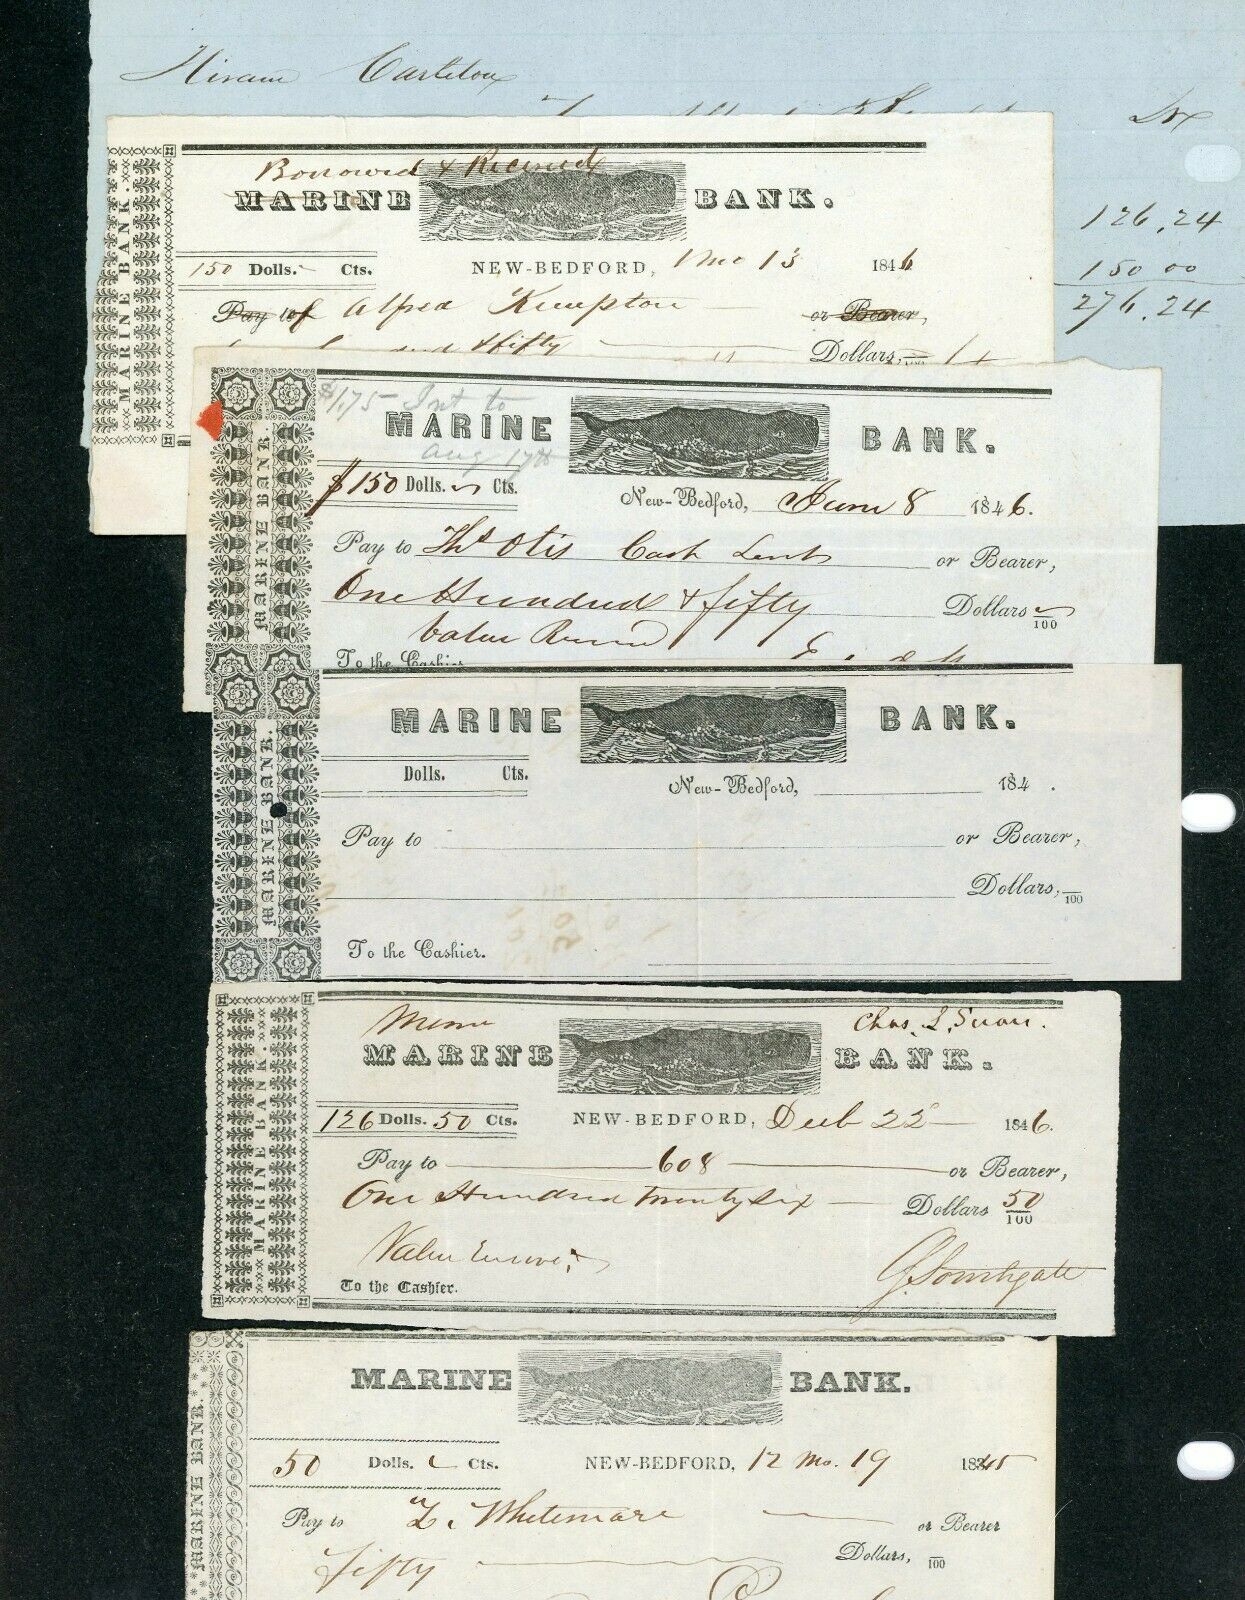 Hiram Carleton
Dr
126.24
150 00
276.24
Borrowed & Received
MARINE BANK.
MARINE BANK.
150 Dolls. Cts. NEW-BEDFORD, 1 mo 13 1846
Pay to of Alfred Kempton or Bearer,
& fifty Dollars,
$1.75 Int to
Aug 17th
MARINE BANK.
MARINE BANK.
$150 Dolls. Cts. New-Bedford, June 8 1846.
Pay to Thos Otis Cash Lent or Bearer,
One Hundred & fifty Dollars /100
Value
To the Cashier
MARINE BANK.
MARINE BANK.
Dolls. Cts. New-Bedford, 184 .
Pay to or Bearer,
Dollars, /100
To the Cashier.
Memo Chas. L.
MARINE BANK.
MARINE BANK.
126 Dolls. 50 Cts. NEW-BEDFORD, 22 1846.
Pay to 608 or Bearer,
One Hundred Twenty Six Dollars 50/100
Value
To the Cashier. G. Southgate
MARINE BANK.
MARINE BANK.
50 Dolls. Cts. NEW-BEDFORD, 12 Mo. 19 1845
Pay to Z. Whitemore or Bearer
fifty Dollars, /100